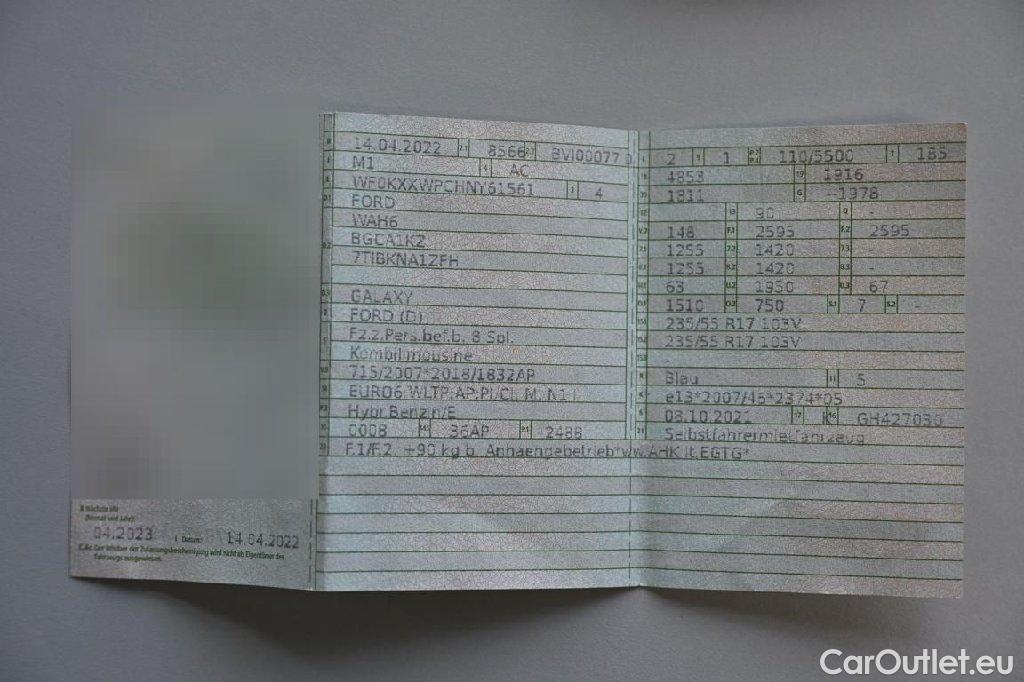 14.04.2022 8566 BVI00077 0
M1 AC
WF0KXXWPCHNY61561 4
FORD
WAH6
BGCA1KZ
7TIBKNA1ZFH
GALAXY
FORD (D)
F.z.z.Pers.bef.b. 8 Spl.
Kombilimousine
715/2007*2018/1832AP
EURO6 WLTP;AP;PI/CI; M, N1 I
Hybr.Benzin/E
0008 36AP 2488
F.1/F.2: +90 kg b. Anhaengebetrieb*ww.AHK lt.EGTG*
Nächste HU
(Monat und Jahr)
04.2023 I Datum: 14.04.2022
C.4c Der Inhaber der Zulassungsbescheinigung wird nicht als Eigentümer des
Fahrzeugs ausgewiesen.
2 1 110/5500 185
4853 1916
1811 -1978
- 90 -
148 2595 2595
1255 1420 -
1255 1420 -
63 1950 67
1510 750 7 -
235/55 R17 103V
235/55 R17 103V
-
Blau 5
e13*2007/46*2374*05
08.10.2021 K GH427030
Selbstfahrermietfahrzeug
CarOutlet.eu